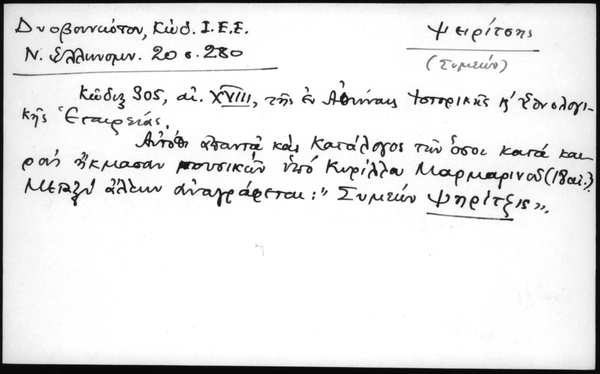 Δυοβουνιώτου, Κώδ. Ι.Ε.Ε.
Ν. Ελληνομν. 20 σ. 280
Ψειρίτσης
(Συμεών)
Κῶδιξ 305, αἰ. XVIII, τῆς ἐν Ἀθήναις Ἱστορικῆς κ' Ἐθνολογι-
κῆς Ἑταιρείας.
Αὐτόθι ἀπαντᾷ καὶ κατάλογος τῶν ὅσοι κατὰ και-
ροὺς ἤκμασαν μουσικῶν ὑπὸ Κυρίλλου Μαρμαρινοῦ (18 αἰ.).
Μεταξὺ ἄλλων ἀναγράφεται: "Συμεὼν Ψηρίτζης".